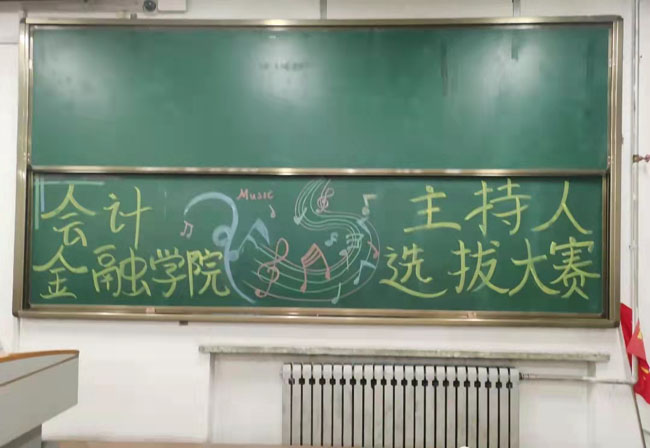 会计
金融学院
Music
主持人
选拔大赛